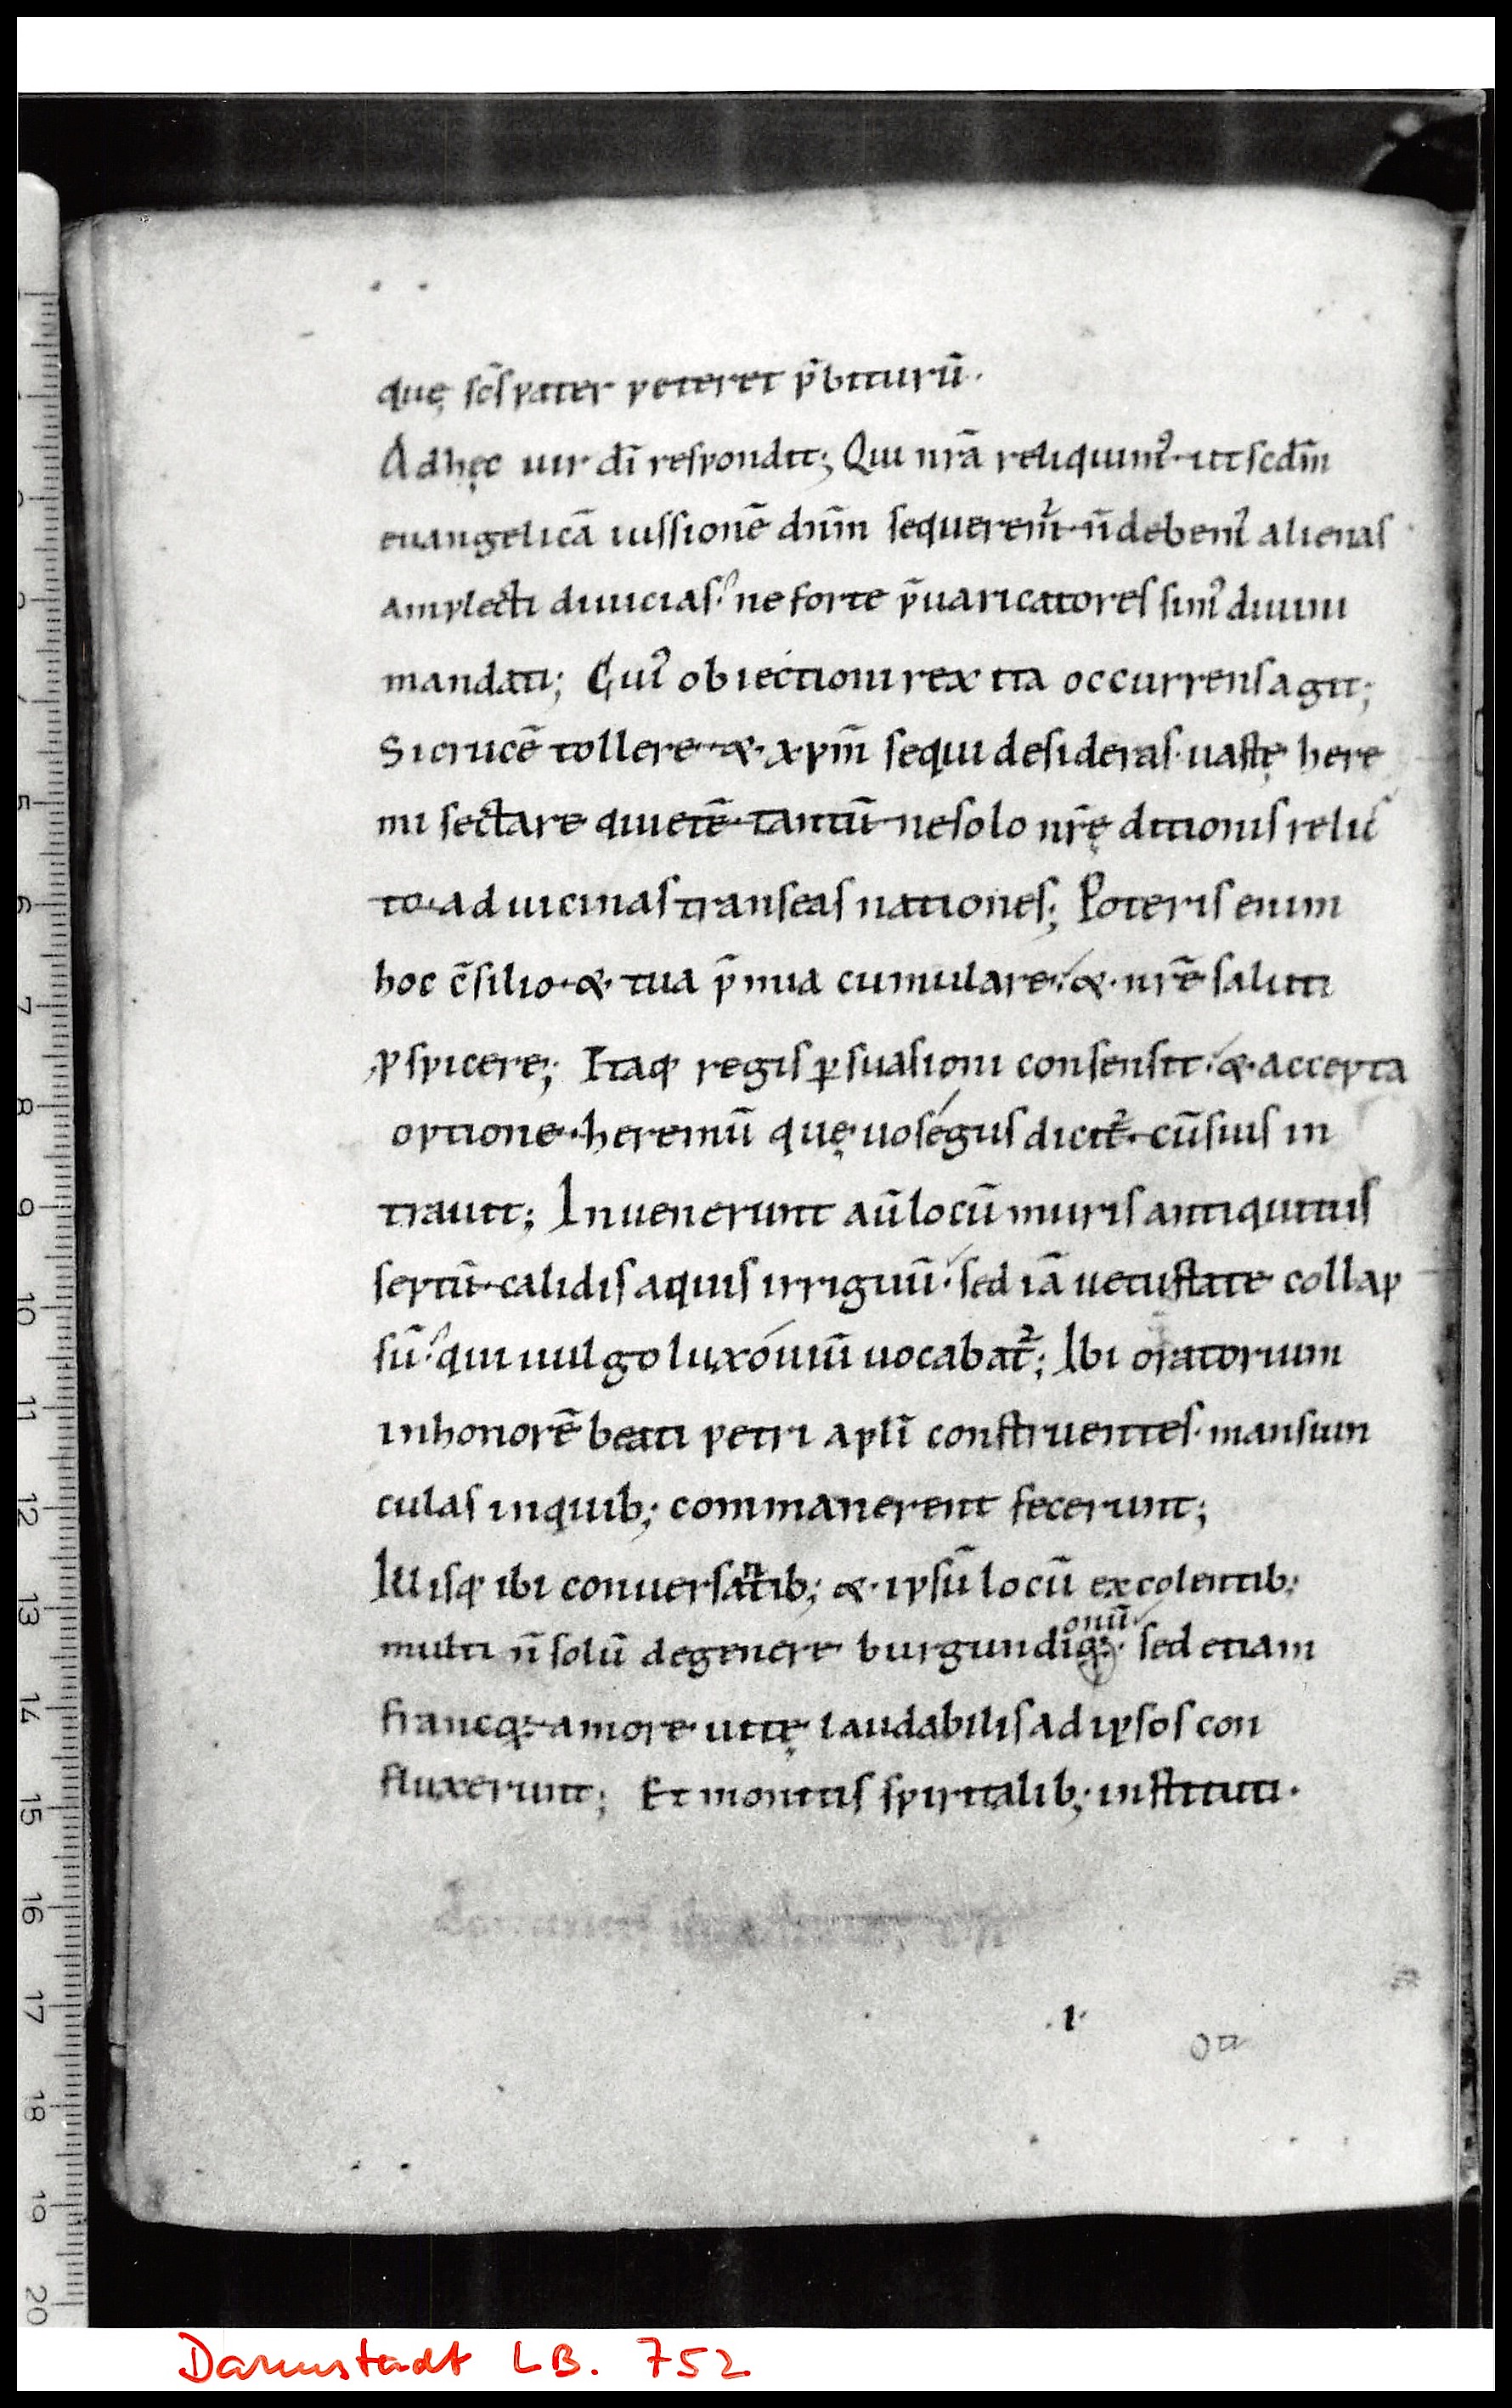 quę sc̄s pater peteret p̄biturū.
Ad hęc uir dī respondit; Qui nrā reliquim᾽. ut scdm̄
euangelicā iussionē dnm̄ sequerem᾽. n̄ debem᾽ alienas
amplecti diuicias. ne forte p̄uaricatores sim᾽ diuini
mandati; Cui᾽ obiectioni rex ita occurrens agit;
Si crucē tollere. &. xpm̄ sequi desideras. uastę here
mi sectare quietē. tantū ne solo nrę̄ ditionis relic
to. ad uicinas transeas nationes; Poteris enim
hoc c̄silio. &. tua p̄mia cumulare. &. nrē saluti
pspicere; Itaq regis ꝑsuasioni consensit. &. accepta
optione. heremū quę uosegus dicit᾽. cū suis in
trauit; Inuenerunt aū locū muris antiquitus
septū. calidis aquis irriguū. sed iā uetustate collap
sū. qui uulgo luxouiū uocabat᾽; Ibi oratorium
in honorē beati petri aplī construentes. mansiun
culas in quib; commanerent fecerunt;
Illisq ibi conuersantib; &. ipsū locū excolentib;
onū
multi n̄ solū de genere burgundioꝝ. sed etiam
francoꝝ. amore uitę laudabilis ad ipsos con
fluxerunt; Et monitis spiritalib; instituti.
.1.
Darmstadt LB. 752
5
6
7
8
9
10
11
12
13
14
15
16
17
18
19
20